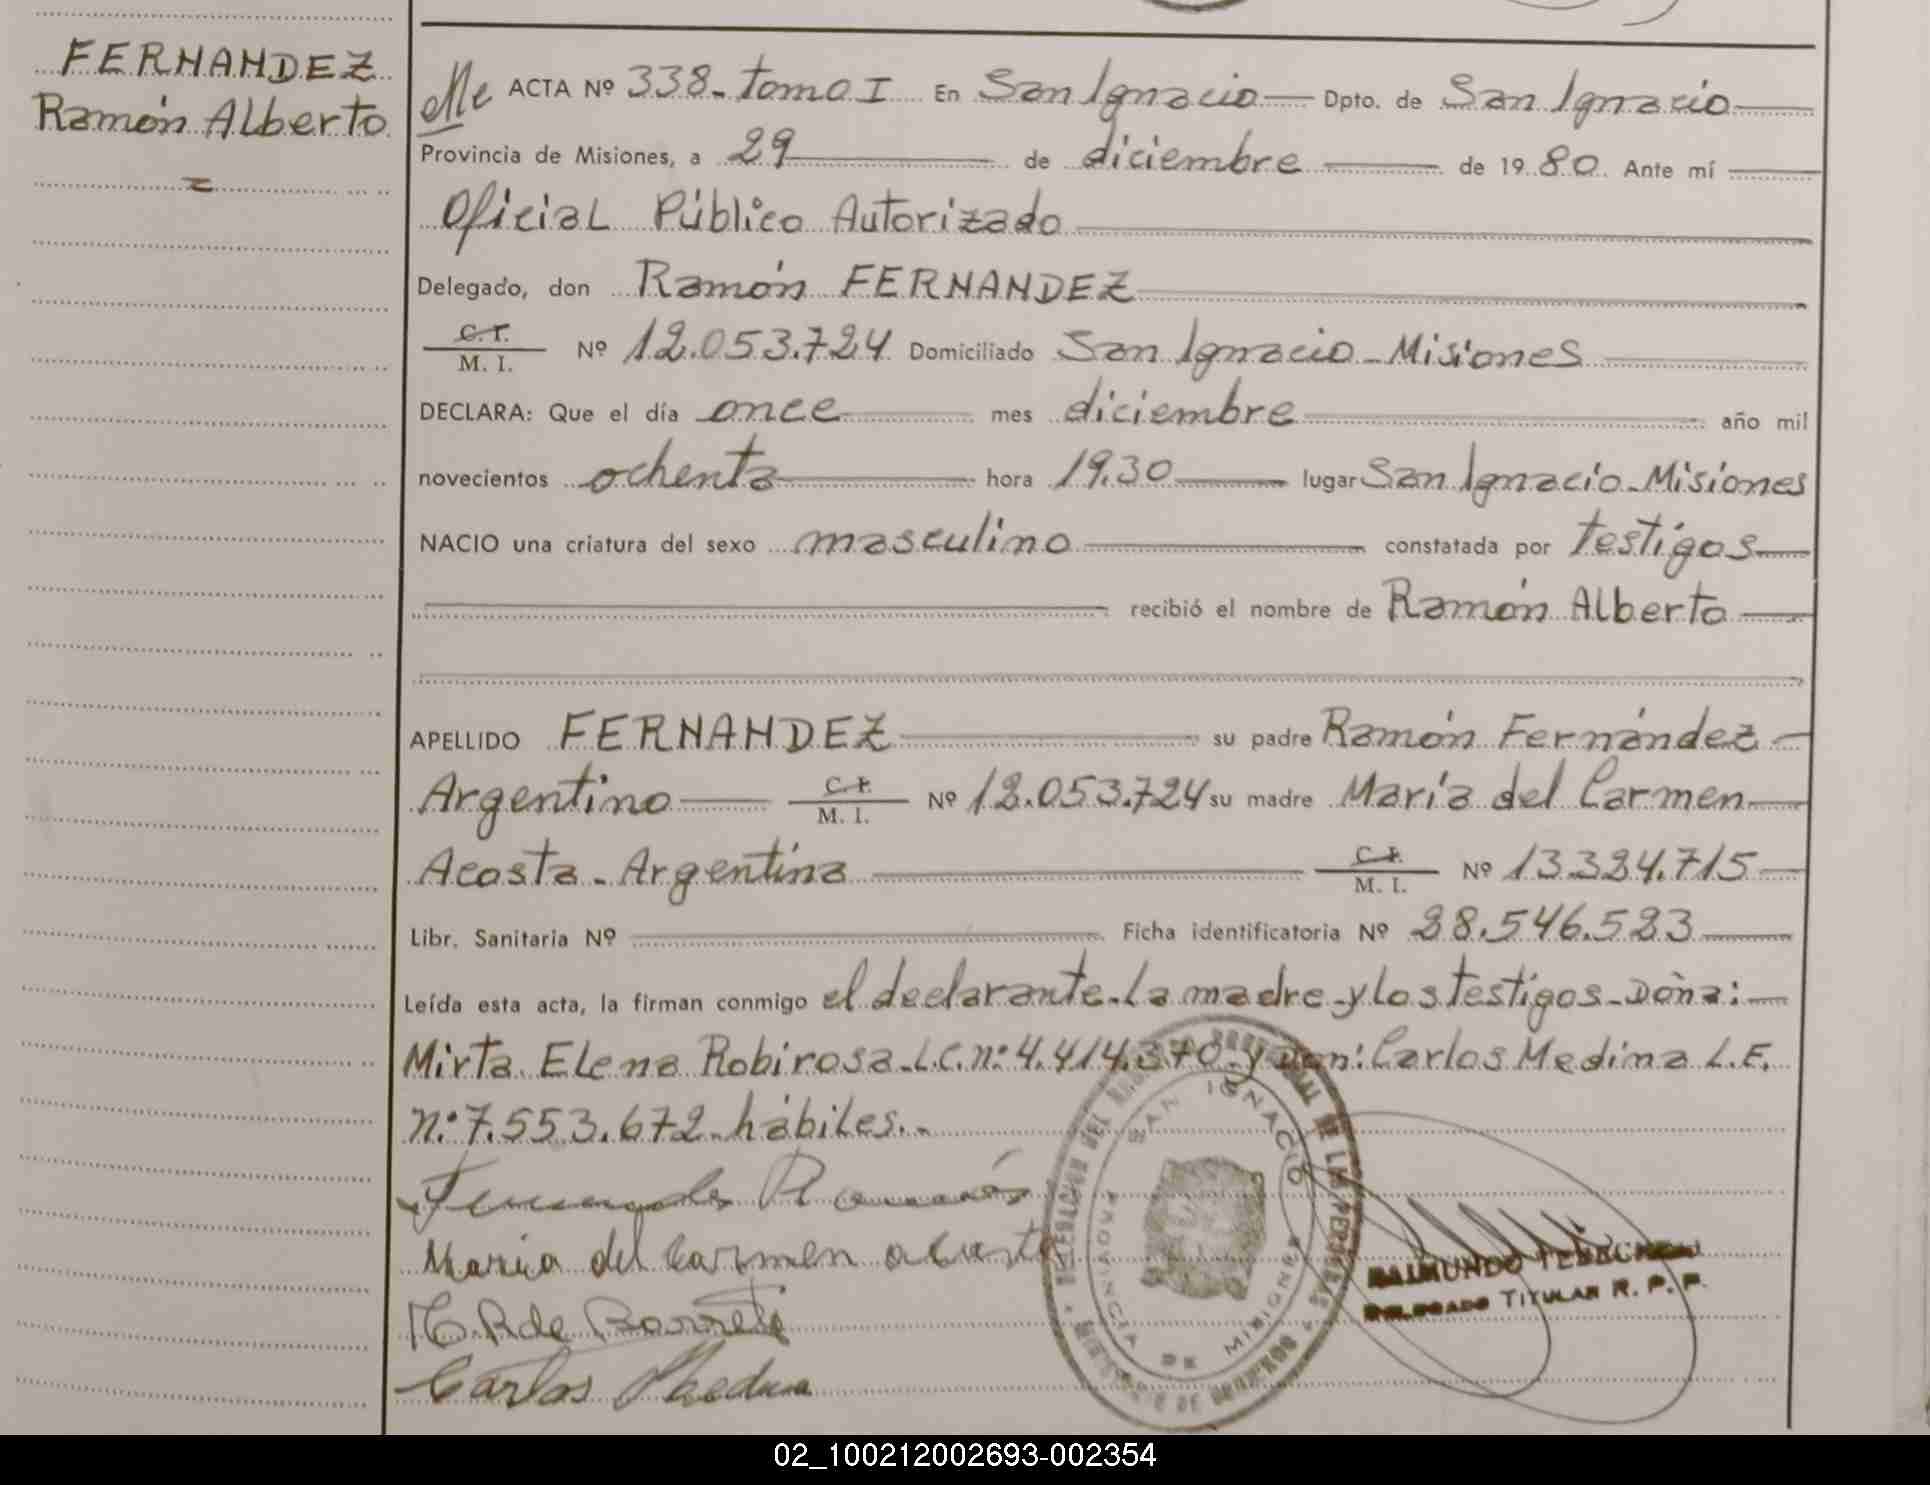 FERNANDEZ
Ramón Alberto
ACTA Nº 338-tomo I En San Ignacio Dpto. de San Ignacio
Provincia de Misiones, a 29 de diciembre de 1980. Ante mí
Oficial Público Autorizado
Delegado, don Ramón FERNANDEZ
C. I.
M. I. Nº 12.053.724 Domiciliado San Ignacio-Misiones
DECLARA: Que el día once mes diciembre año mil
novecientos ochenta hora 19.30 lugar San Ignacio-Misiones
NACIO una criatura del sexo masculino constatada por testigos
recibió el nombre de Ramón Alberto
APELLIDO FERNANDEZ su padre Ramón Fernández
Argentino C. I.
M. I. Nº 12.053.724 su madre María del Carmen
Acosta-Argentina C. I.
M. I. Nº 13.324.715
Libr. Sanitaria Nº Ficha identificatoria Nº 28.546.523
Leída esta acta, la firman conmigo el declarante-la madre-y los testigos-Doña:
Mirta Elena Robirosa-L.C.nº:4.414.370-y don: Carlos Medina L.E.
nº:7.553.672-hábiles.-
Fernandes Ramón
Maria del Carmen acosta
Carlos Medina
SAN IGNACIO
PROVINCIA DE MISIONES
RAIMUNDO
DELEGADO TITULAR R. P. P.
02_100212002693-002354